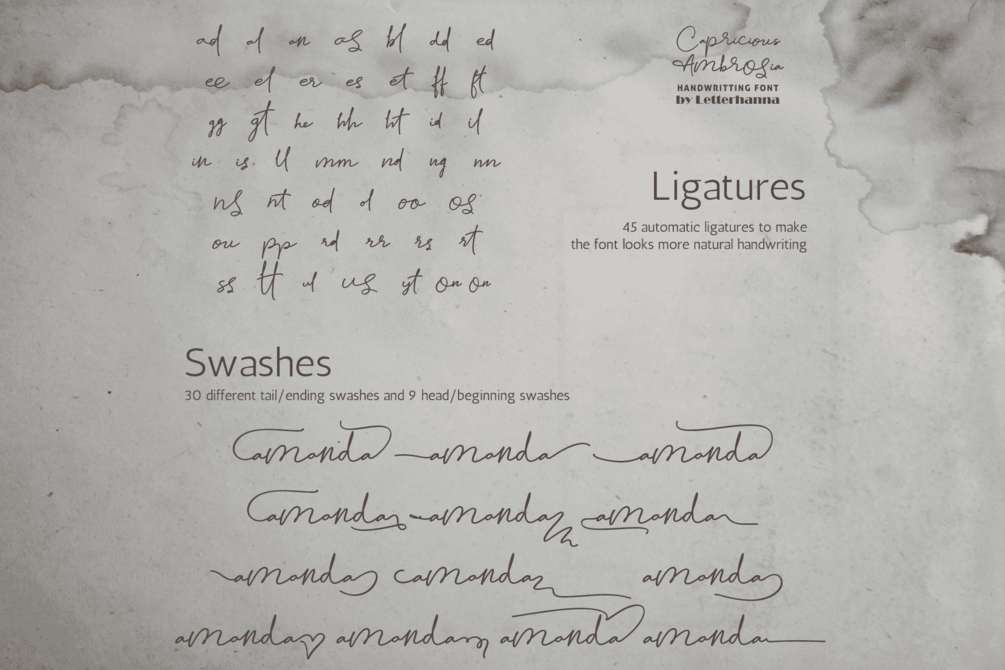 ad al an as bl dd ed
ee el er es et ff ft
gg gt he hh ht id il
in is ll mm nd ng nn
ns nt od ol oo os
ou pp rd rr rs rt
ss tt ul us yt On On
Capricious
Ambrosia
HANDWRITTING FONT
by Letterhanna
Ligatures
45 automatic ligatures to make
the font looks more natural handwriting
Swashes
30 different tail/ending swashes and 9 head/beginning swashes
amonda amonda amonda
amonda amonda amonda
amonda amonda amonda
amonda amonda amonda amonda